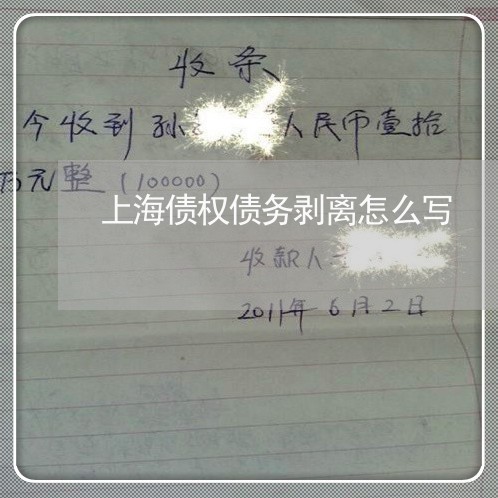 收条
今收到 孙 人民币壹拾
万元整(100000)
上海债权债务剥离怎么写
收款人
2011年6月2日